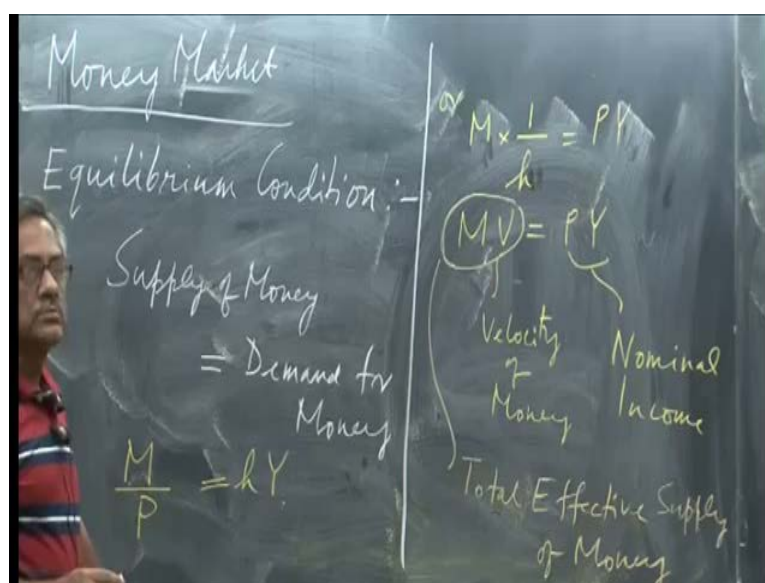 Money Market
Equilibrium Condition :-
Supply of Money
= Demand for
Money
M/P = kY
or M × 1/k = PY
MV = PY
Velocity
of
Money
Nominal
Income
Total Effective Supply
of Money